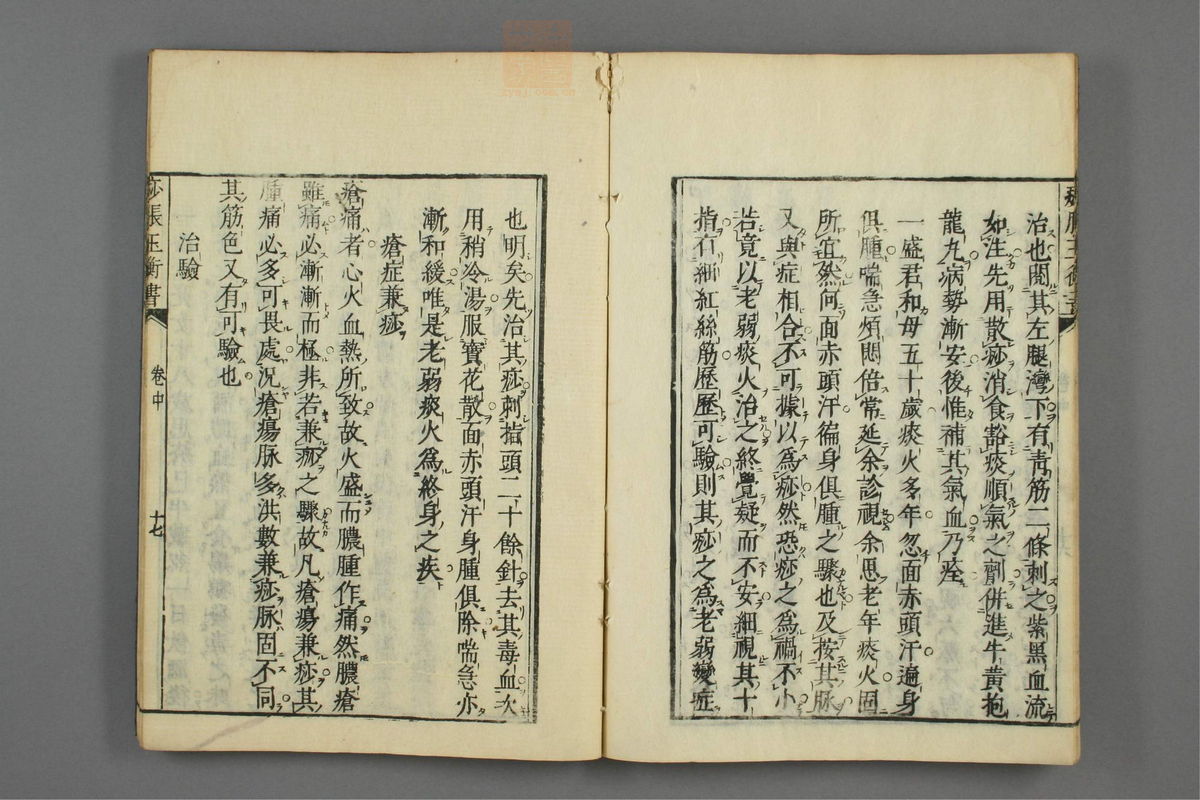 治也閱其左腿灣下有青筋二條刺之紫黑血流
如注先用散痧消食豁痰順氣之劑併進牛黃抱
龍丸病勢漸安後惟補其氣血乃痊
一盛君和母五十歲痰火多年忽面赤頭汗遍身
俱腫喘急煩悶倍常延余診視余思老年痰火固
所宜然何面赤頭汗徧身俱腫之驟也及按其脉
又與症相合不可據以為痧然恐痧之為禍不小
若竟以老弱痰火治之終覺疑而不安細視其十
指有細紅絲筋歷歷可驗則其痧之為老弱變症
也明矣先治其痧刺指頭二十餘針去其毒血次
用稍冷湯服寶花散面赤頭汗身腫俱除喘急亦
漸和緩唯是老弱痰火為終身之疾
瘡症兼痧
瘡痛者心火血熱所致故火盛而膿腫作痛然膿瘡
雖痛必漸漸而極非若兼痧之驟故凡瘡瘍兼痧其
腫痛必多可畏處況瘡瘍脉多洪數兼痧脉固不同
其筋色又有可驗也
治驗
痧脹玉衡書
卷中
十七